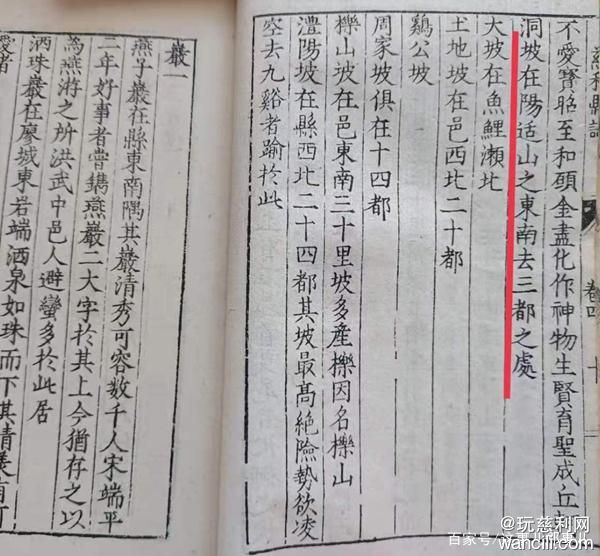 慈利縣誌 卷四 十
不愛寶昭至和頭金盡化作神物生賢育聖成丘
洞坡在陽适山之東南去三都之處
大坡在魚鯉瀨北
土地坡在邑西北二十都
鷄公坡
周家坡俱在十四都
櫟山坡在邑東南三十里坡多產櫟因名櫟山
澧陽坡在縣西北二十四都其坡最高絕險勢欲凌
空去九谿者踰於此
巖一
燕子巖在縣東南隅其巖清秀可容数千人宋端平
二年好事者嘗鐫燕巖二大字於其上今猶存之以
為燕游之所洪武中邑人避蠻多於此居
洒珠巖在廖城東岩端洒泉如珠而下其清美有可
愛者
百家号/
@玩慈利网
wancili.com